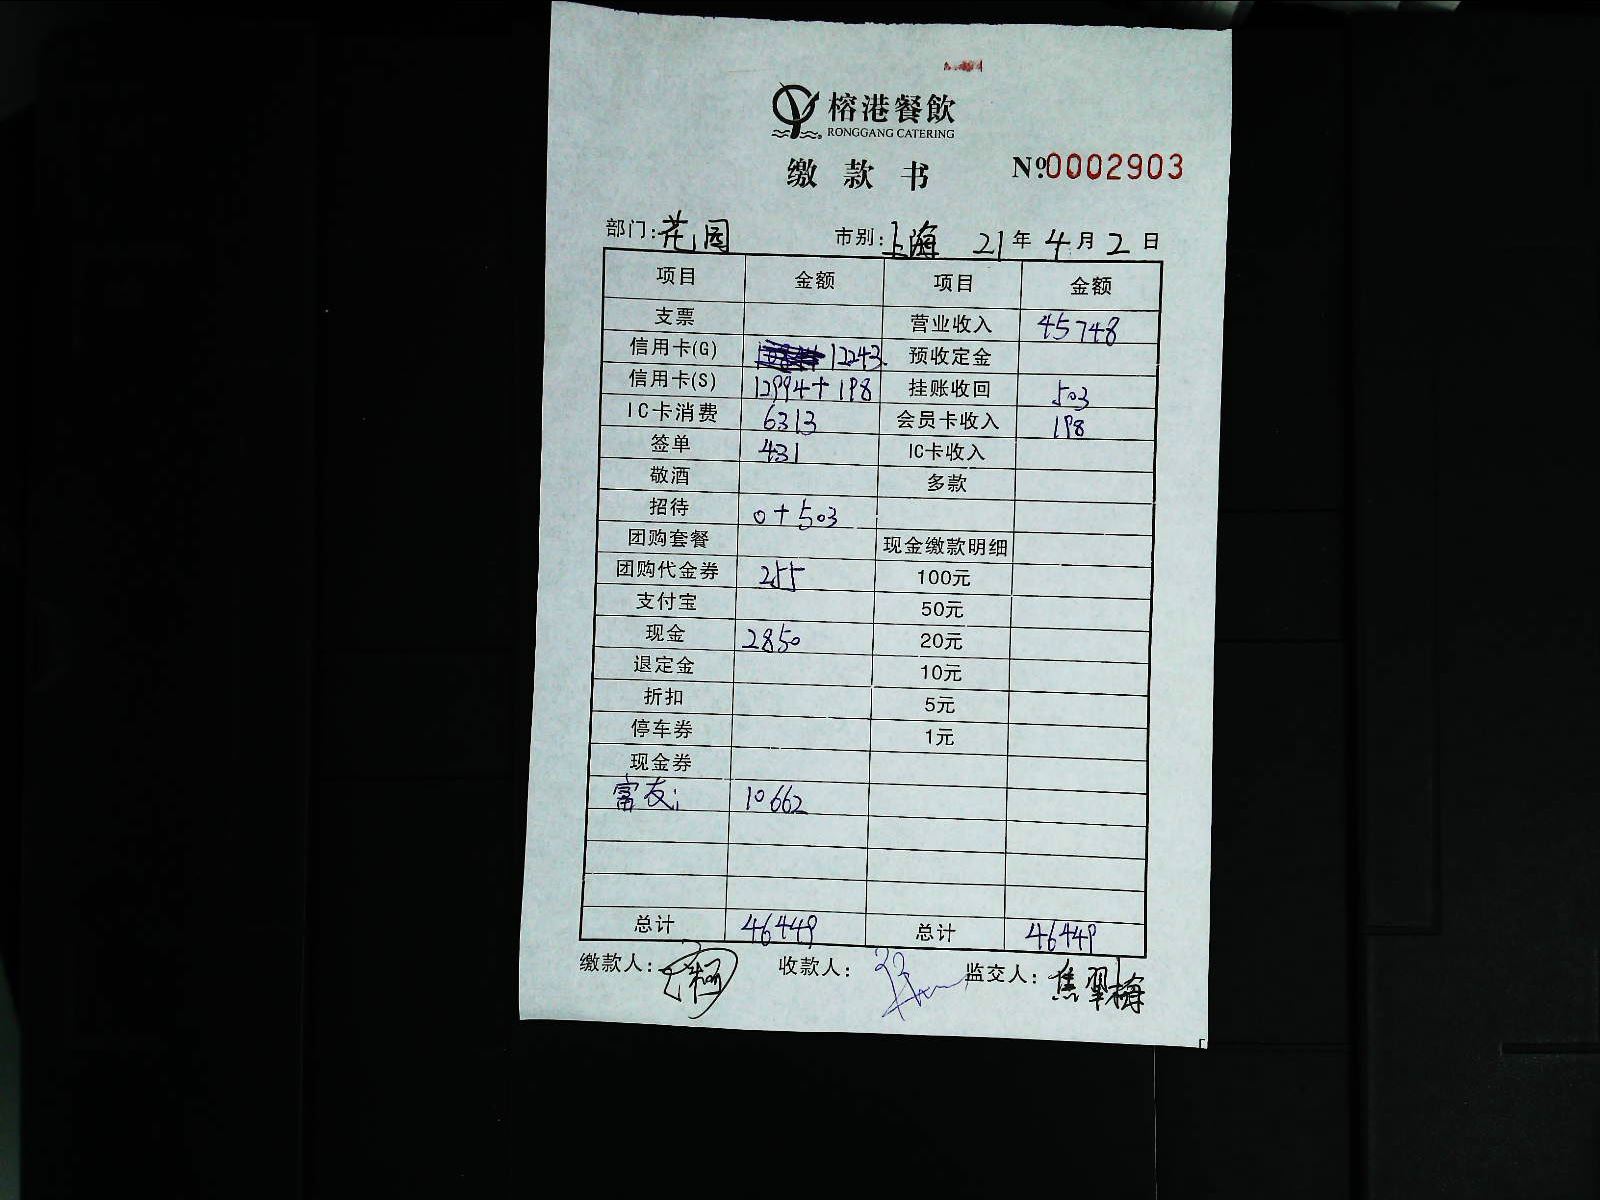 榕港餐飲
RONGGANG CATERING
缴款书 №0002903
部门:花园 市别:上海 21年4月2日
项目 金额 项目 金额
支票 营业收入 45748
信用卡(G) 12243 预收定金
信用卡(S) 12994+198 挂账收回 503
IC卡消费 6313 会员卡收入 198
签单 431 IC卡收入
敬酒 多款
招待 0+503
团购套餐 现金缴款明细
团购代金券 255 100元
支付宝 50元
现金 2850 20元
退定金 10元
折扣 5元
停车券 1元
现金券
富友: 10662
总计 46449 总计 46449
缴款人: 收款人: 监交人:焦翠梅